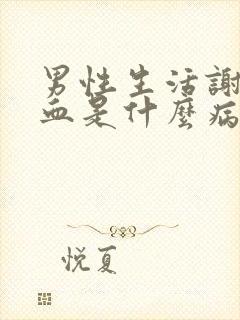 男性生活謝
血是什麼病
悦夏